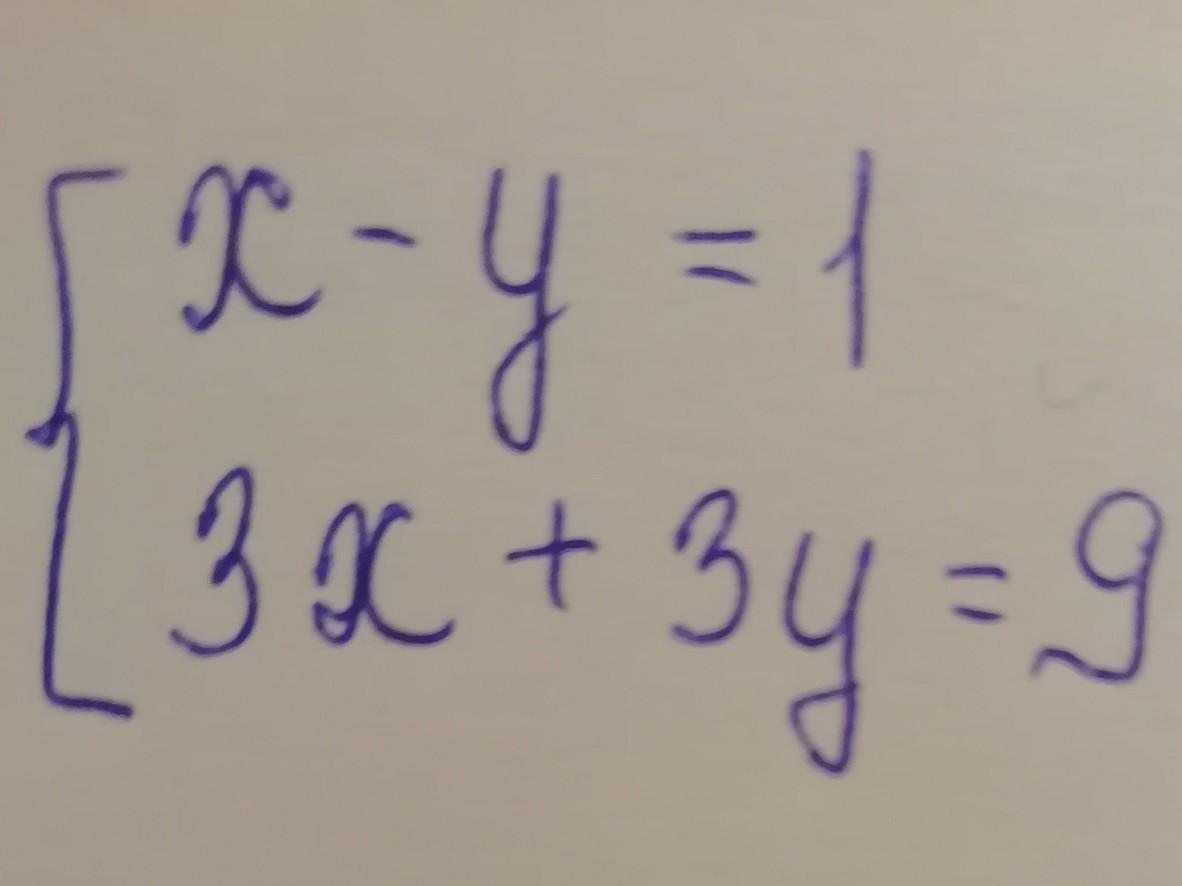 x - y = 1
3x + 3y = 9